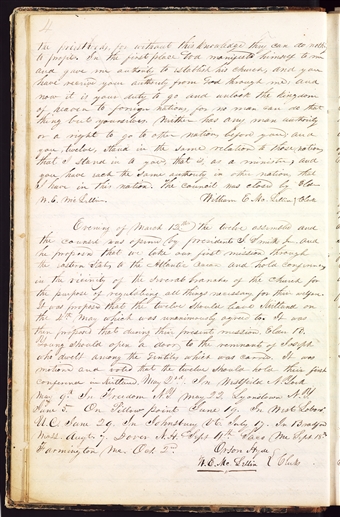 4
the priesthood, for without this knowledge they can do nothing
to profit. In the first place God manifested himself to me
and gave me authority to establish his church, and you
have received your authority from God through me; and
now it is your duty to go and unlock the kingdom
of heaven to foreign nations, for no man can do that
thing but yourselves. Neither has any man authority
or a right to go to other nations before you; and
you, twelve, stand in the same relation to those nations
that I stand in to you, that is, as a minister; and
you have each the same authority in other nations that
I have in this nation. The council was closed by Elder
W. E. McLellin. William E. McLellin, Clerk
Evening of March 12th, the twelve assembled and
the council was opened by president J. Smith Jr. and
he proposed that we take our first mission through
the Eastern States to the Atlantic Ocean and hold conferences
in the vicinity of the several branches of the church for
the purpose of regulating all things necessary for their welfare.
It was proposed that the twelve leave Kirtland on
the 4th May which was unanimously agreed to. It was
then proposed that during their present mission Elder B.
Young should open a door to the remnants of Joseph
who dwell among the Gentiles which was carried. It was
motioned and voted that the twelve should hold their first
conference in Kirtland, May 2nd. In Westfield N. York
May 9th. In Freedom N.Y. May 22. Lyonstown N.Y.
June 5. On Pillow point June 19. In West Loboro
U.C. June 29. In Johnsbury Vt. July 17. In Bradford
Mass. Augt. 7. Dover N.H. Sept. 4th. Saco Me. Sept. 18th
Farmington Me. Oct. 2nd.
Orson Hyde
W. E. McLellin } Clerks